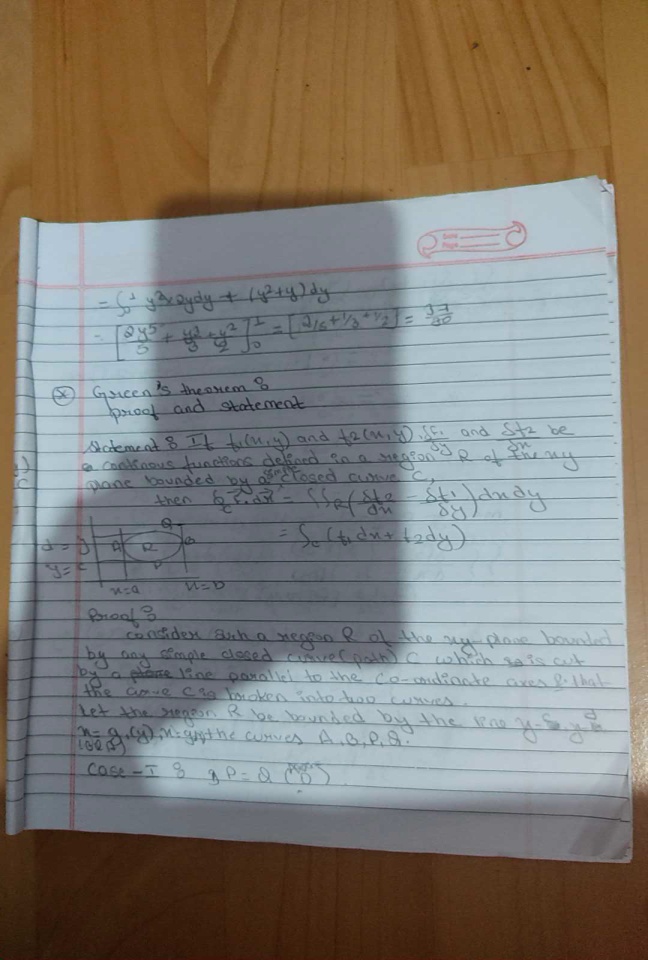 Date
Page
= ∫₀¹ y²x2ydy + (y²+y)dy
= [2y⁵/5 + y³/3 + y²/2]₀¹ = [2/5+1/3+1/2] = 37/30
Green's theorem :
proof and statement
Statement : If f1(x,y) and f2(x,y), δf1/δy and δf2/δx be
a continous functions defined in a region R of the xy
plane bounded by a simple closed curve C,
then ∫c F.dr = ∫∫R (δf2/δx - δf1/δy) dx dy
= ∫c (f1 dx + f2 dy)
Q
A R B
y = c
P
x=a x=b
Proof :
consider such a region R of the xy-plane bounded
by any simple closed curve (path) C which is cut
by a line parallel to the co-ordinate axes that
the curve C is broken into two curves.
Let the region R be bounded by the line
the curves A, B, P, Q.
Case-I : P = Q